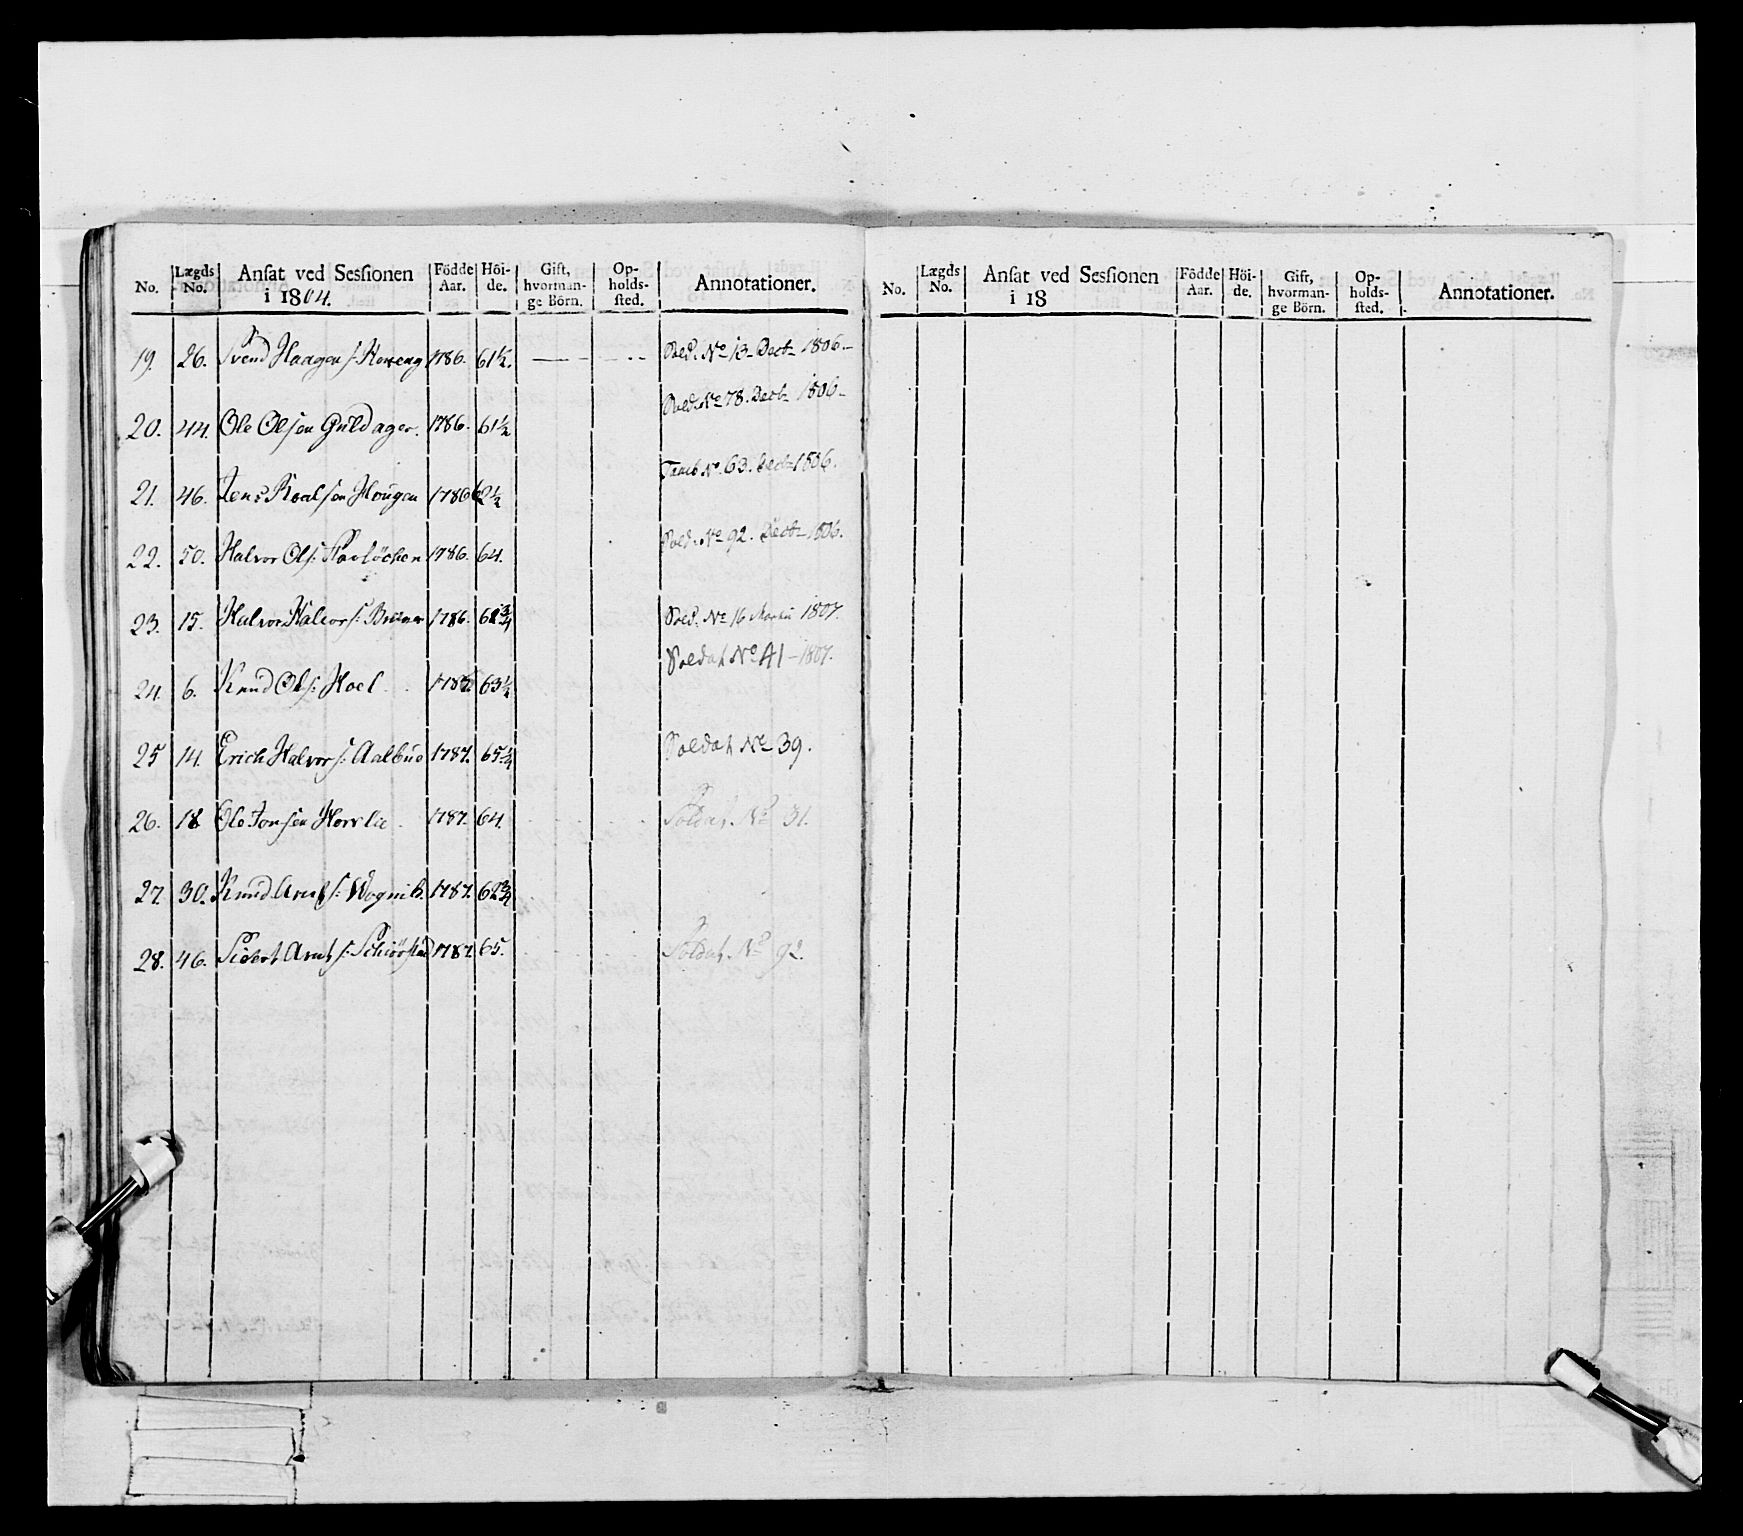 No. | Lægds No. | Ansat ved Sessionen i 1804. | Födde Aar. | Höi-de. | Gift, hvorman-ge Börn. | Op-holds-sted. | Annotationer.
19. | 26. | Svend Haagens: | 1786. | 61½. | Sold. No 13 Dect 1806.
20. | 44. | Ole Olsen Guldager. | 1786. | 61½ | Sold. No 78. Dect 1806.
21. | 46. | Jens Roalsen Hougen | 1786 | 62½ | Tamb No. 63. Dect 1806.
22. | 50. | Halvor Ols: | 1786. | 64. | Sold. No 92. Dect 1806.
23. | 15. | Halvor Halvors: | 1786. | 62¾ | Sold. No 16 Martii 1807.
24. | 6. | Knud Ols: Hoel | 63½ | Soldat No 41 - 1807.
25 | 14. | Erich Halvors: Aalbue | 1787. | 65¼ | Soldat No 39.
26. | 18 | Ole Jonsen Horvlie | 1787. | 64. | Soldat No 31.
27. | 30. | Knud Arnts: | 1787. | 62¾
28. | 46. | Sivert Arnts: | 1787. | 65. | Soldat No 92.
No. | Lægds No. | Ansat ved Sessionen i 18 | Födde Aar. | Höi-de. | Gift, hvorman-ge Börn. | Op-holds-sted. | Annotationer.